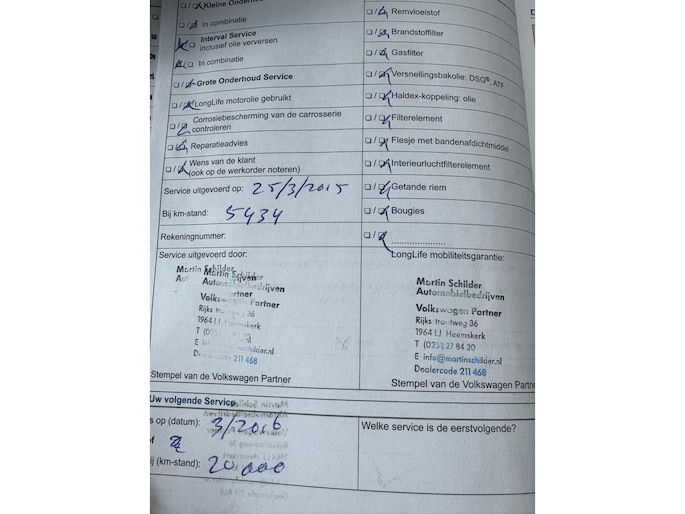 Kleine Onderhoud
In combinatie
Interval Service
inclusief olie verversen
In combinatie
Grote Onderhoud Service
LongLife motorolie gebruikt
Corrosiebescherming van de carrosserie
controleren
Reparatieadvies
Wens van de klant
(ook op de werkorder noteren)
Service uitgevoerd op: 25/3/2015
Bij km-stand: 5434
Rekeningnummer:
Service uitgevoerd door:
Martin Schilder
Martin Schilder
Automobielbedrijven
Volkswagen Partner
Rijks straatweg 36
1964 LJ Heemskerk
Dealercode 211 468
Stempel van de Volkswagen Partner
Remvloeistof
Brandstoffilter
Gasfilter
Versnellingsbakolie: DSG®, ATF
Haldex-koppeling: olie
Filterelement
Flesje met bandenafdichtmiddel
Interieurluchtfilterelement
Getande riem
Bougies
......................
LongLife mobiliteitsgarantie:
Martin Schilder
Automobielbedrijven
Volkswagen Partner
Rijks traatweg 36
1964 LJ Heemskerk
T (0251) 27 84 30
E info@martinschilder.nl
Dealercode 211 468
Stempel van de Volkswagen Partner
Uw volgende Service
s op (datum): 3/2016
of
ij (km-stand): 20000
Welke service is de eerstvolgende?